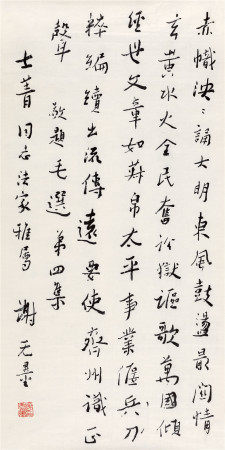 赤幟泱〻誦大明東風鼓盪最關情
玄黃水火全民奮訟獄謳歌萬國傾
經世文章如菽帛太平事業偃兵刀
粹編續出流傳遠要使齊州識正
聲 敬題毛選第四集
士菁同志法家雅屬 謝无量